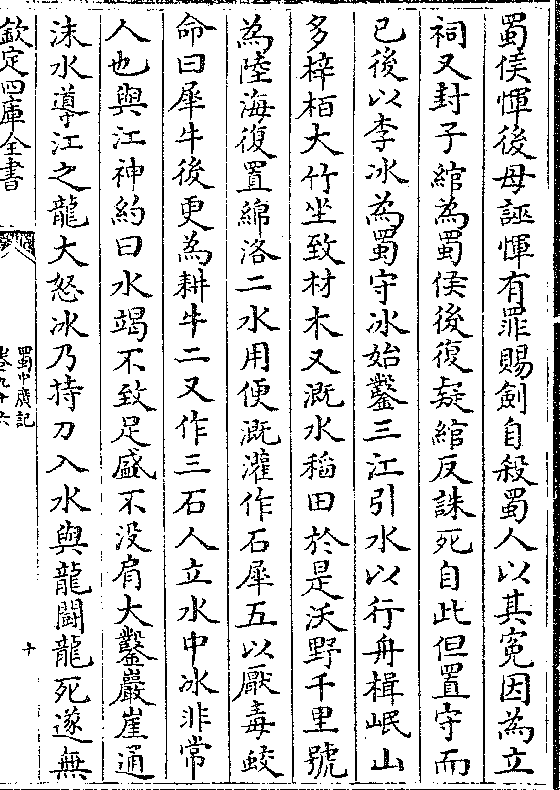 蜀侯惲後母誣惲有罪賜劍自殺蜀人以其寃因為立
祠又封子綰為蜀侯後復疑綰反誅死自此但置守而
已後以李冰為蜀守冰始鑿三江引水以行舟楫岷山
多梓栢大竹坐致材木又溉水稲田於是沃野千里號
為陸海復置綿洛二水用便溉灌作石犀五以厭毒蛟
命曰犀牛後更為耕牛二又作三石人立水中冰非常
人也與江神約曰水竭不致足盛不没肩大鑿巖崖通
沫水導江之龍大怒冰乃持刀入水與龍鬭龍死遂無
欽定四庫全書
蜀中廣記
卷九十六
十